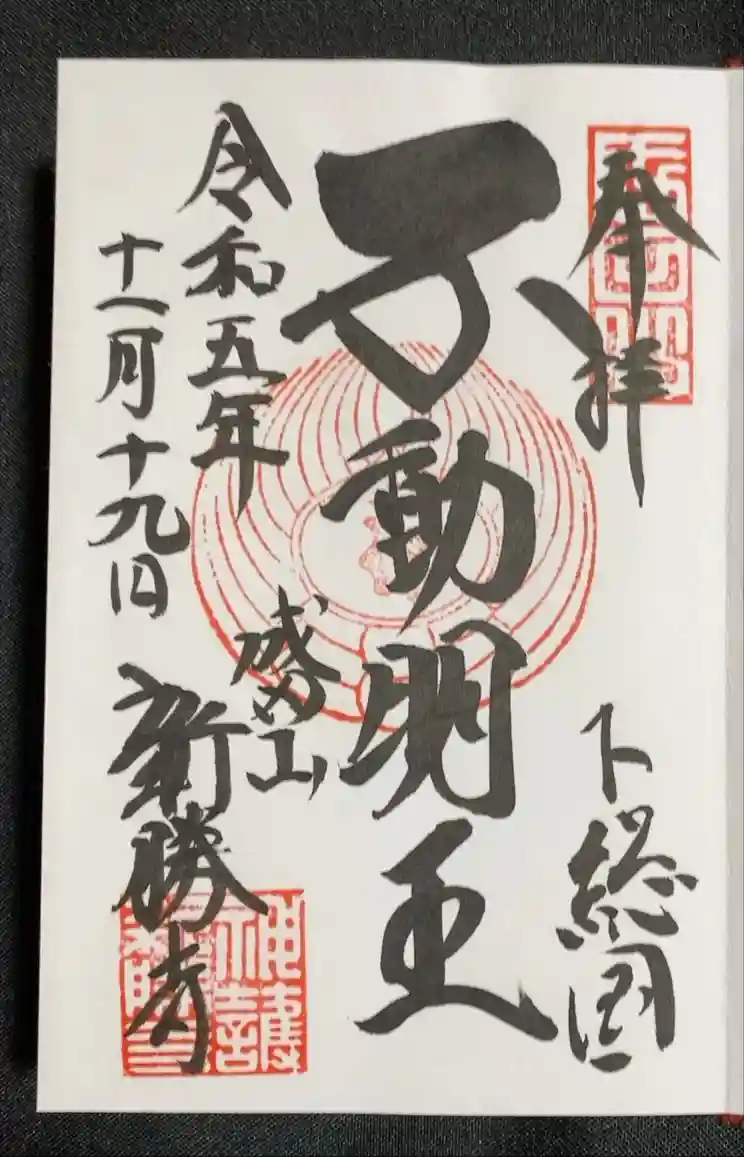 奉拝
下総国
不動明王
令和五年
十一月十九日
成田山
新勝寺
成田山